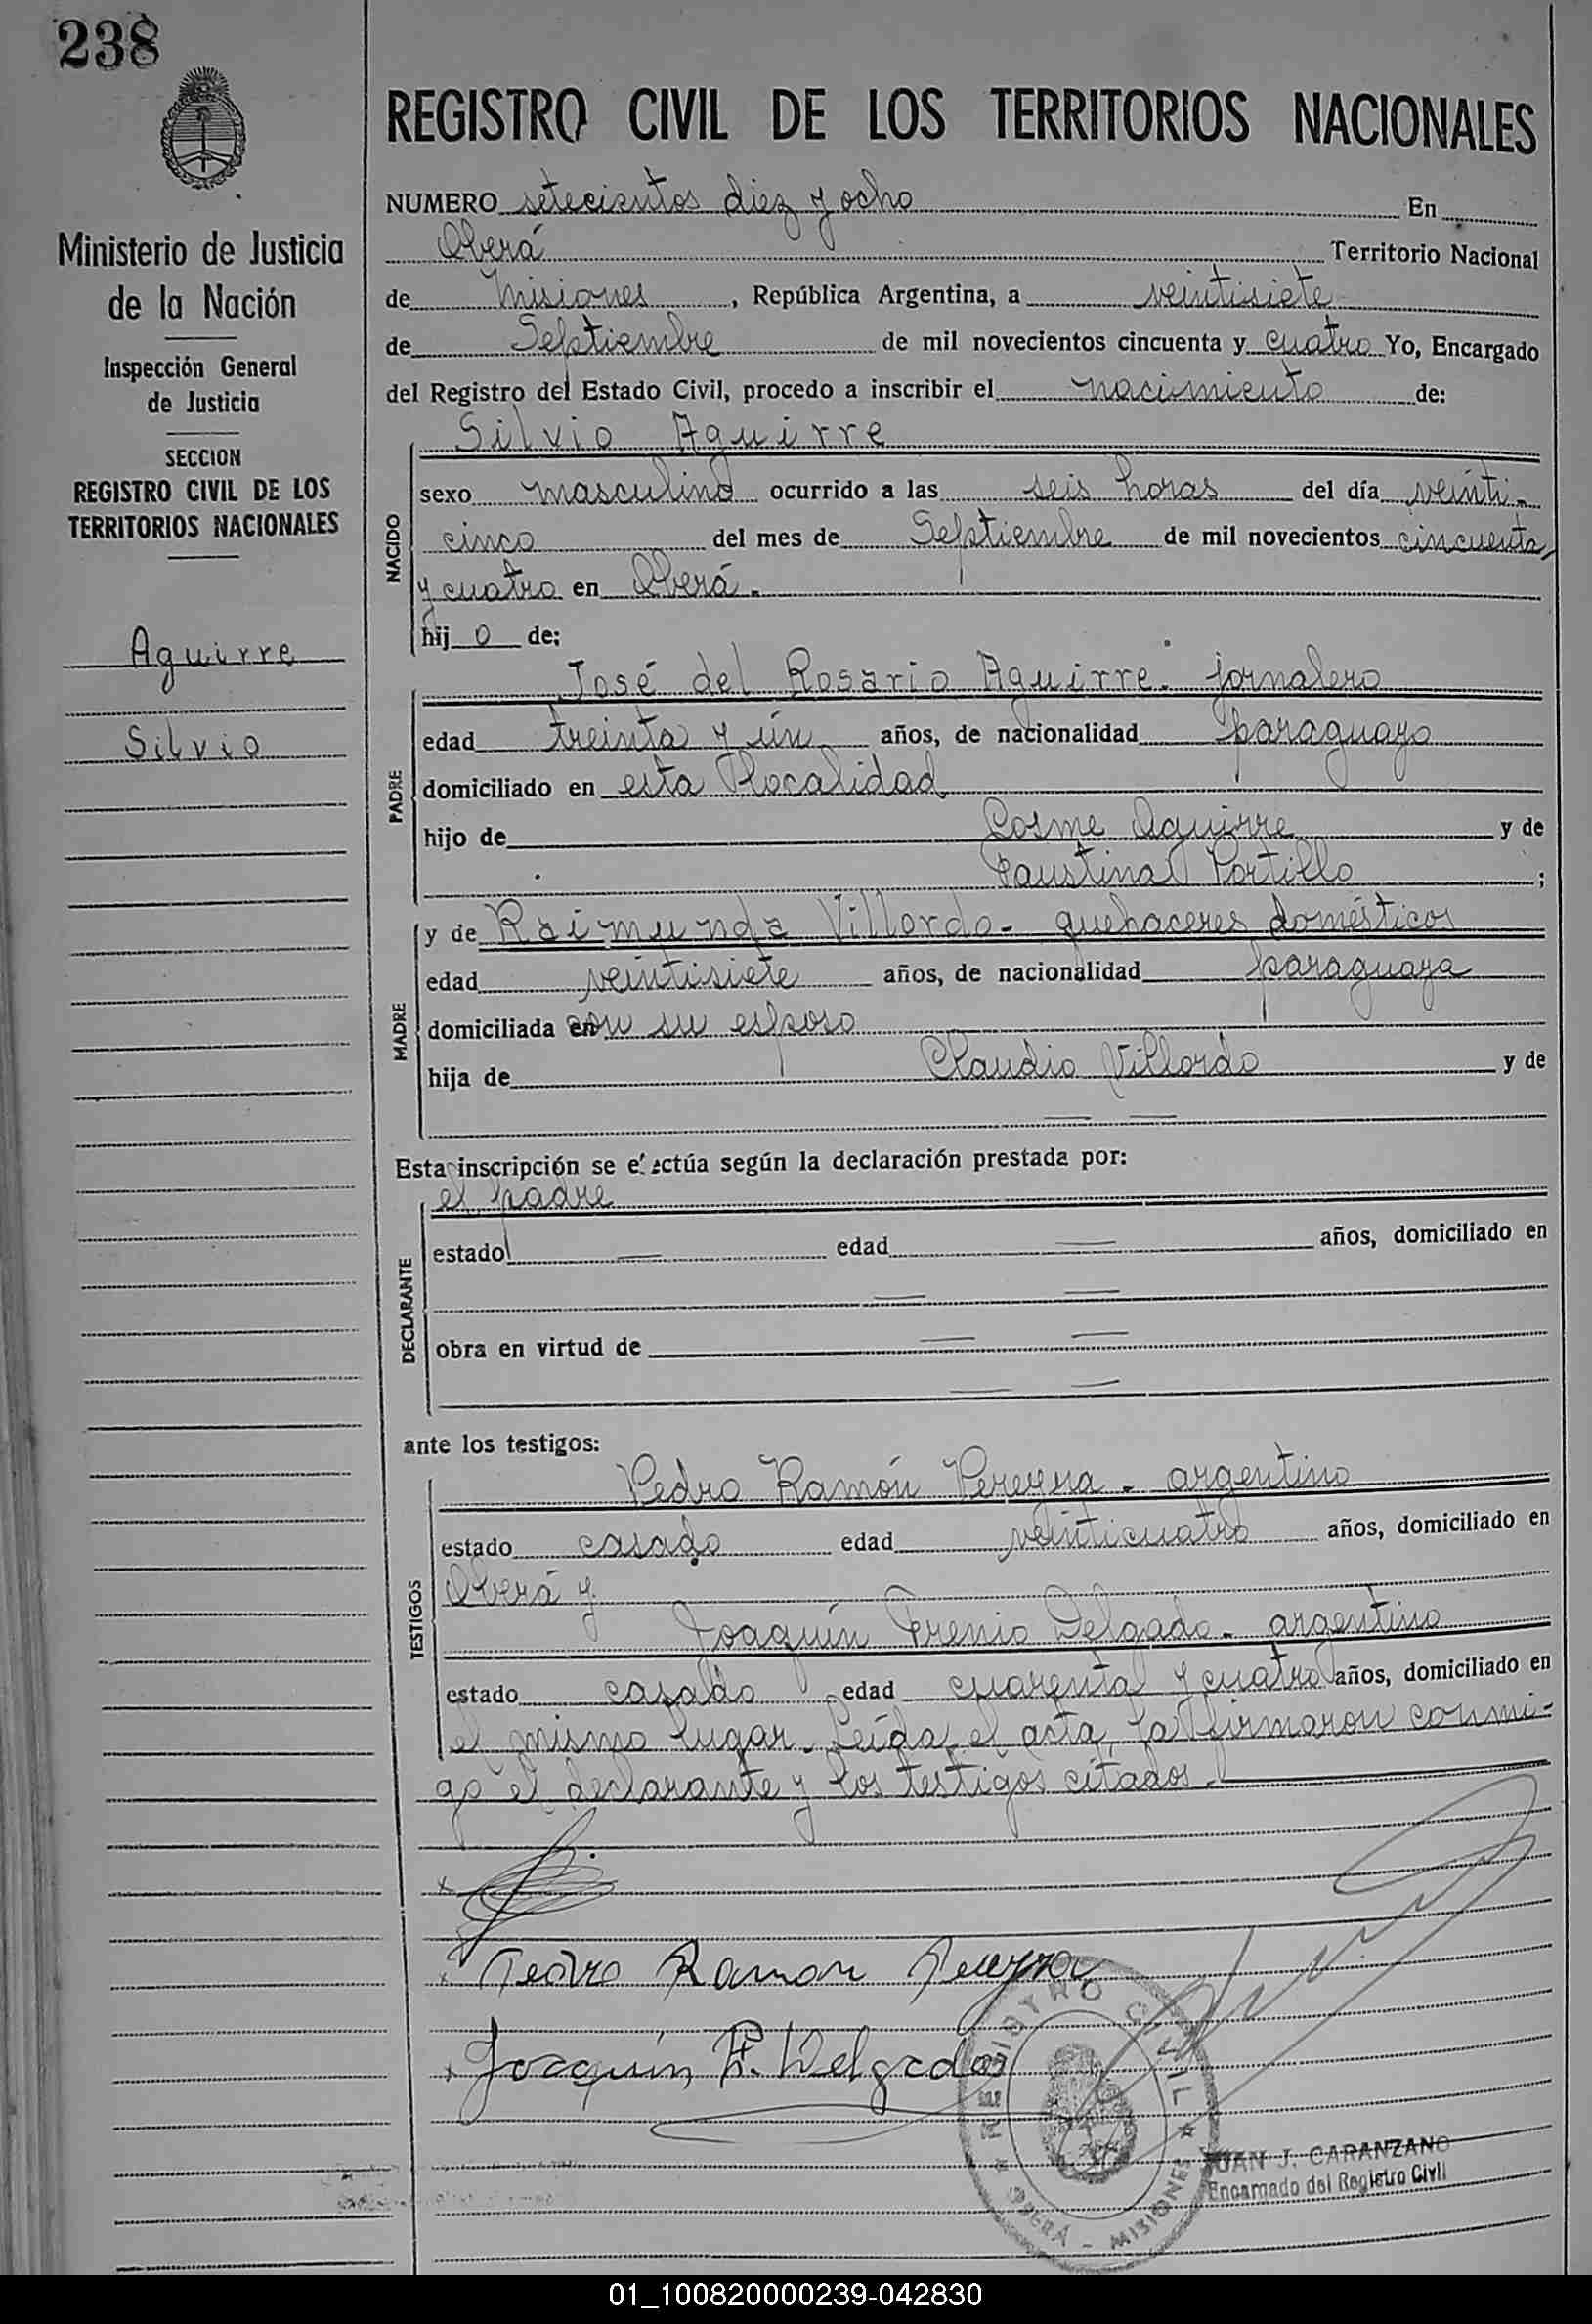 238
REGISTRO CIVIL DE LOS TERRITORIOS NACIONALES
Ministerio de Justicia
de la Nación
Inspección General
de Justicia
SECCION
REGISTRO CIVIL DE LOS
TERRITORIOS NACIONALES
Aguirre
Silvio
NUMERO setecientos diez y ocho En
Oberá Territorio Nacional
de Misiones, República Argentina, a veintisiete
de Septiembre de mil novecientos cincuenta y cuatro Yo, Encargado
del Registro del Estado Civil, procedo a inscribir el nacimiento de:
Silvio Aguirre
NACIDO
sexo masculino ocurrido a las seis horas del día veinti-
cinco del mes de Septiembre de mil novecientos cincuenta
y cuatro en Oberá.
hijo de:
PADRE
José del Rosario Aguirre. jornalero
edad treinta y ún años, de nacionalidad paraguayo
domiciliado en esta localidad
hijo de Cosme Aguirre y de
Faustina Portillo ;
MADRE
y de Raimunda Villordo - quehaceres domésticos
edad veintisiete años, de nacionalidad paraguaya
domiciliada en con su esposo
hija de Claudio Villordo y de
— —
Esta inscripción se efectúa según la declaración prestada por:
DECLARANTE
el padre
estado — edad — años, domiciliado en
— —
obra en virtud de — —
— —
ante los testigos:
TESTIGOS
Pedro Ramón Pereyra - argentino
estado casado edad veinticuatro años, domiciliado en
Oberá y
Joaquín Delgado - argentino
estado casado edad cuarenta y cuatro años, domiciliado en
el mismo lugar. Leída el acta, la firmaron conmi-
go el declarante y los testigos citados.
x
x Pedro Ramon Pereyra
x Joaquín F. Delgado
REGISTRO CIVIL
OBERÁ - MISIONES
JUAN J. CARANZANO
Encargado del Registro Civil
01_100820000239-042830